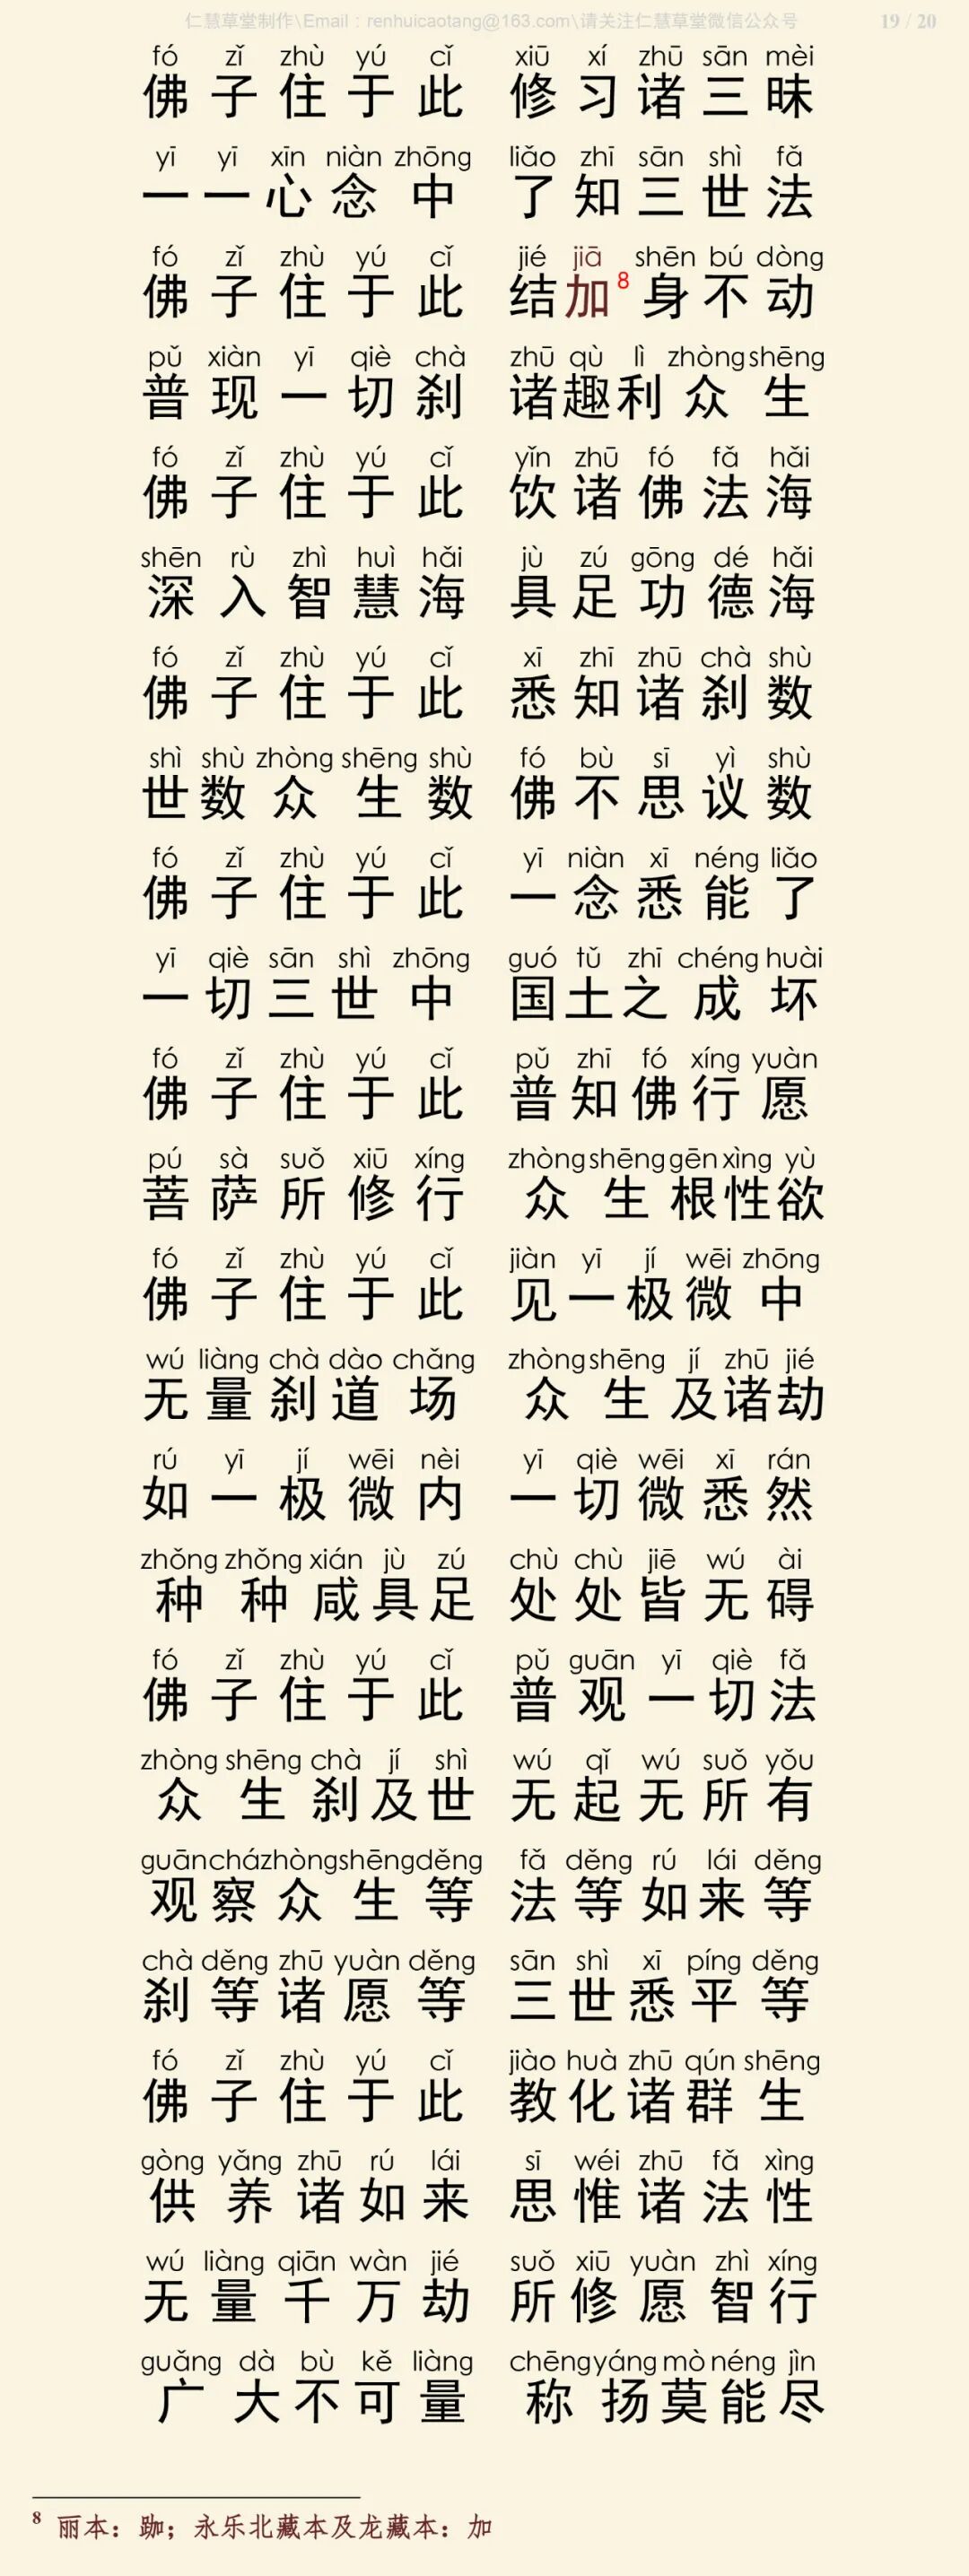 仁慧草堂制作\Email：renhuicaotang@163.com\请关注仁慧草堂微信公众号 19 / 20
fó zǐ zhù yú cǐ xiū xí zhū sān mèi
佛子住于此 修习诸三昧
yī yī xīn niàn zhōng liǎo zhī sān shì fǎ
一一心念中 了知三世法
fó zǐ zhù yú cǐ jié jiā shēn bú dòng
佛子住于此 结加8身不动
pǔ xiàn yī qiè chà zhū qù lì zhòng shēng
普现一切刹 诸趣利众生
fó zǐ zhù yú cǐ yǐn zhū fó fǎ hǎi
佛子住于此 饮诸佛法海
shēn rù zhì huì hǎi jù zú gōng dé hǎi
深入智慧海 具足功德海
fó zǐ zhù yú cǐ xī zhī zhū chà shù
佛子住于此 悉知诸刹数
shì shù zhòng shēng shù fó bù sī yì shù
世数众生数 佛不思议数
fó zǐ zhù yú cǐ yī niàn xī néng liǎo
佛子住于此 一念悉能了
yī qiè sān shì zhōng guó tǔ zhī chéng huài
一切三世中 国土之成坏
fó zǐ zhù yú cǐ pǔ zhī fó xíng yuàn
佛子住于此 普知佛行愿
pú sà suǒ xiū xíng zhòng shēng gēn xìng yù
菩萨所修行 众生根性欲
fó zǐ zhù yú cǐ jiàn yī jí wēi zhōng
佛子住于此 见一极微中
wú liàng chà dào chǎng zhòng shēng jí zhū jié
无量刹道场 众生及诸劫
rú yī jí wēi nèi yī qiè wēi xī rán
如一极微内 一切微悉然
zhǒng zhǒng xián jù zú chù chù jiē wú ài
种种咸具足 处处皆无碍
fó zǐ zhù yú cǐ pǔ guān yī qiè fǎ
佛子住于此 普观一切法
zhòng shēng chà jí shì wú qǐ wú suǒ yǒu
众生刹及世 无起无所有
guān chá zhòng shēng děng fǎ děng rú lái děng
观察众生等 法等如来等
chà děng zhū yuàn děng sān shì xī píng děng
刹等诸愿等 三世悉平等
fó zǐ zhù yú cǐ jiào huà zhū qún shēng
佛子住于此 教化诸群生
gòng yǎng zhū rú lái sī wéi zhū fǎ xìng
供养诸如来 思惟诸法性
wú liàng qiān wàn jié suǒ xiū yuàn zhì xíng
无量千万劫 所修愿智行
guǎng dà bù kě liàng chēng yáng mò néng jìn
广大不可量 称扬莫能尽
8 丽本：跏；永乐北藏本及龙藏本：加